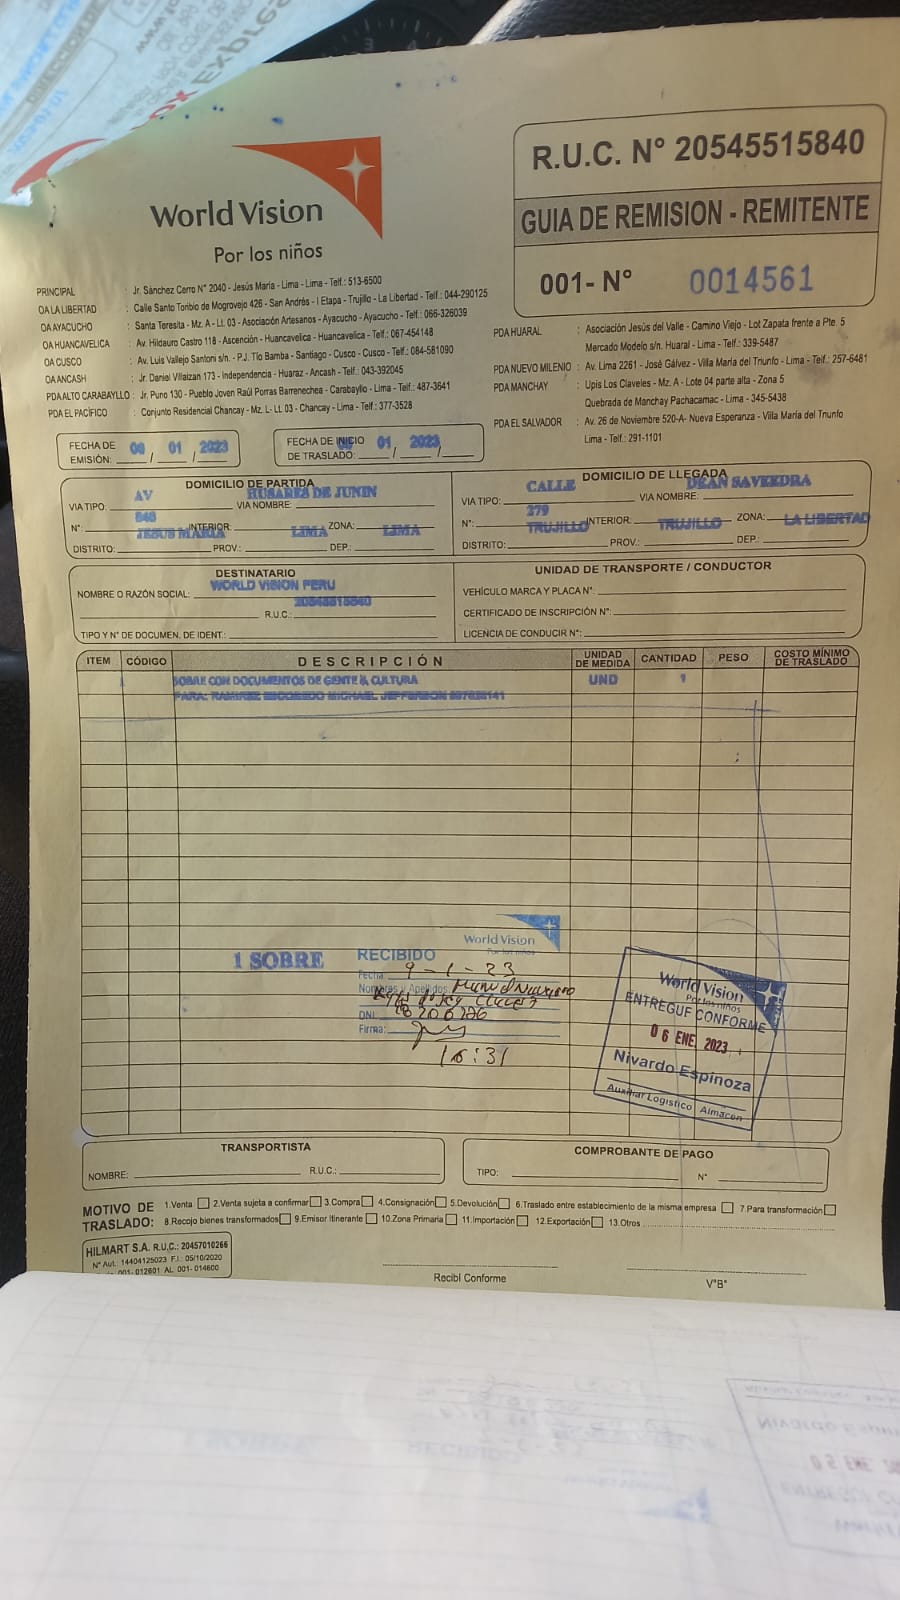 World Vision
Por los niños
R.U.C. N° 20545515840
GUIA DE REMISION - REMITENTE
001- N° 0014561
PRINCIPAL : Jr. Sánchez Cerro N° 2040 - Jesús María - Lima - Lima - Telf.: 513-6500
OA LA LIBERTAD : Calle Santo Toribio de Mogrovejo 426 - San Andrés - I Etapa - Trujillo - La Libertad - Telf : 044-290125
OA AYACUCHO : Santa Teresita - Mz. A - Ll. 03 - Asociación Artesanos - Ayacucho - Ayacucho - Telf.: 066-326039
OA HUANCAVELICA : Av. Hildauro Castro 118 - Ascención - Huancavelica - Huancavelica - Telf.: 067-454148
OA CUSCO : Av. Luis Vallejo Santoni s/n. - P.J. Tío Bamba - Santiago - Cusco - Cusco - Telf.: 084-581090
OA ANCASH : Jr. Daniel Villaizan 173 - Independencia - Huaraz - Ancash - Telf.: 043-392045
PDA ALTO CARABAYLLO : Jr. Puno 130 - Pueblo Joven Raúl Porras Barrenechea - Carabayllo - Lima - Telf.: 487-3641
PDA EL PACÍFICO : Conjunto Residencial Chancay - Mz. L- Ll. 03 - Chancay - Lima - Telf.: 377-3528
PDA HUARAL : Asociación Jesús del Valle - Camino Viejo - Lot Zapata frente a Pte. 5
Mercado Modelo s/n. Huaral - Lima - Telf.: 339-5487
PDA NUEVO MILENIO : Av. Lima 2261 - José Gálvez - Villa María del Triunfo - Lima - Telf.: 257-6481
PDA MANCHAY : Upis Los Claveles - Mz. A - Lote 04 parte alta - Zona 5
Quebrada de Manchay Pachacamac - Lima - 345-5438
PDA EL SALVADOR : Av. 26 de Noviembre 520-A- Nueva Esperanza - Villa María del Triunfo
Lima - Telf.: 291-1101
FECHA DE EMISIÓN: / 01 / 2023
FECHA DE INICIO DE TRASLADO: / 01 / 2023
DOMICILIO DE PARTIDA
VIA TIPO: AV VIA NOMBRE: HUSARES DE JUNIN
N°: INTERIOR: ZONA:
DISTRITO: JESUS MARIA PROV.: LIMA DEP.: LIMA
DOMICILIO DE LLEGADA
VIA TIPO: CALLE VIA NOMBRE: DEAN SAVEEDRA
N°: 279 INTERIOR: ZONA:
DISTRITO: TRUJILLO PROV.: TRUJILLO DEP.: LA LIBERTAD
DESTINATARIO
NOMBRE O RAZÓN SOCIAL: WORLD VISION PERU
R.U.C.: 20545515840
TIPO Y N° DE DOCUMEN. DE IDENT.:
UNIDAD DE TRANSPORTE / CONDUCTOR
VEHÍCULO MARCA Y PLACA N°:
CERTIFICADO DE INSCRIPCIÓN N°:
LICENCIA DE CONDUCIR N°:
ITEM CÓDIGO DESCRIPCIÓN UNIDAD DE MEDIDA CANTIDAD PESO COSTO MÍNIMO DE TRASLADO
1 SOBRE CON DOCUMENTOS DE GENTE & CULTURA UND 1
PARA: RAMIREZ ESCOBEDO MICHAEL JEFFERSON
1 SOBRE
RECIBIDO
World Vision
Por los niños
Fecha 9-1-23
Nombres y Apellidos: Manuel Navarro
DNI
Firma:
16:31
World Vision
Por los niños
ENTREGUE CONFORME
06 ENE. 2023
Nivardo Espinoza
Auxiliar Logistico Almacen
TRANSPORTISTA
NOMBRE: R.U.C.:
COMPROBANTE DE PAGO
TIPO: N°
MOTIVO DE TRASLADO: 1.Venta 2.Venta sujeta a confirmar 3.Compra 4.Consignación 5.Devolución 6.Traslado entre establecimiento de la misma empresa 7.Para transformación
8.Recojo bienes transformados 9.Emisor Itinerante 10.Zona Primaria 11.Importación 12.Exportación 13.Otros
HILMART S.A. R.U.C.: 20457010266
N° Aut. 14404125023 F.I.: 05/10/2020
001- 012601 AL 001- 014600
Recibí Conforme
V°B°